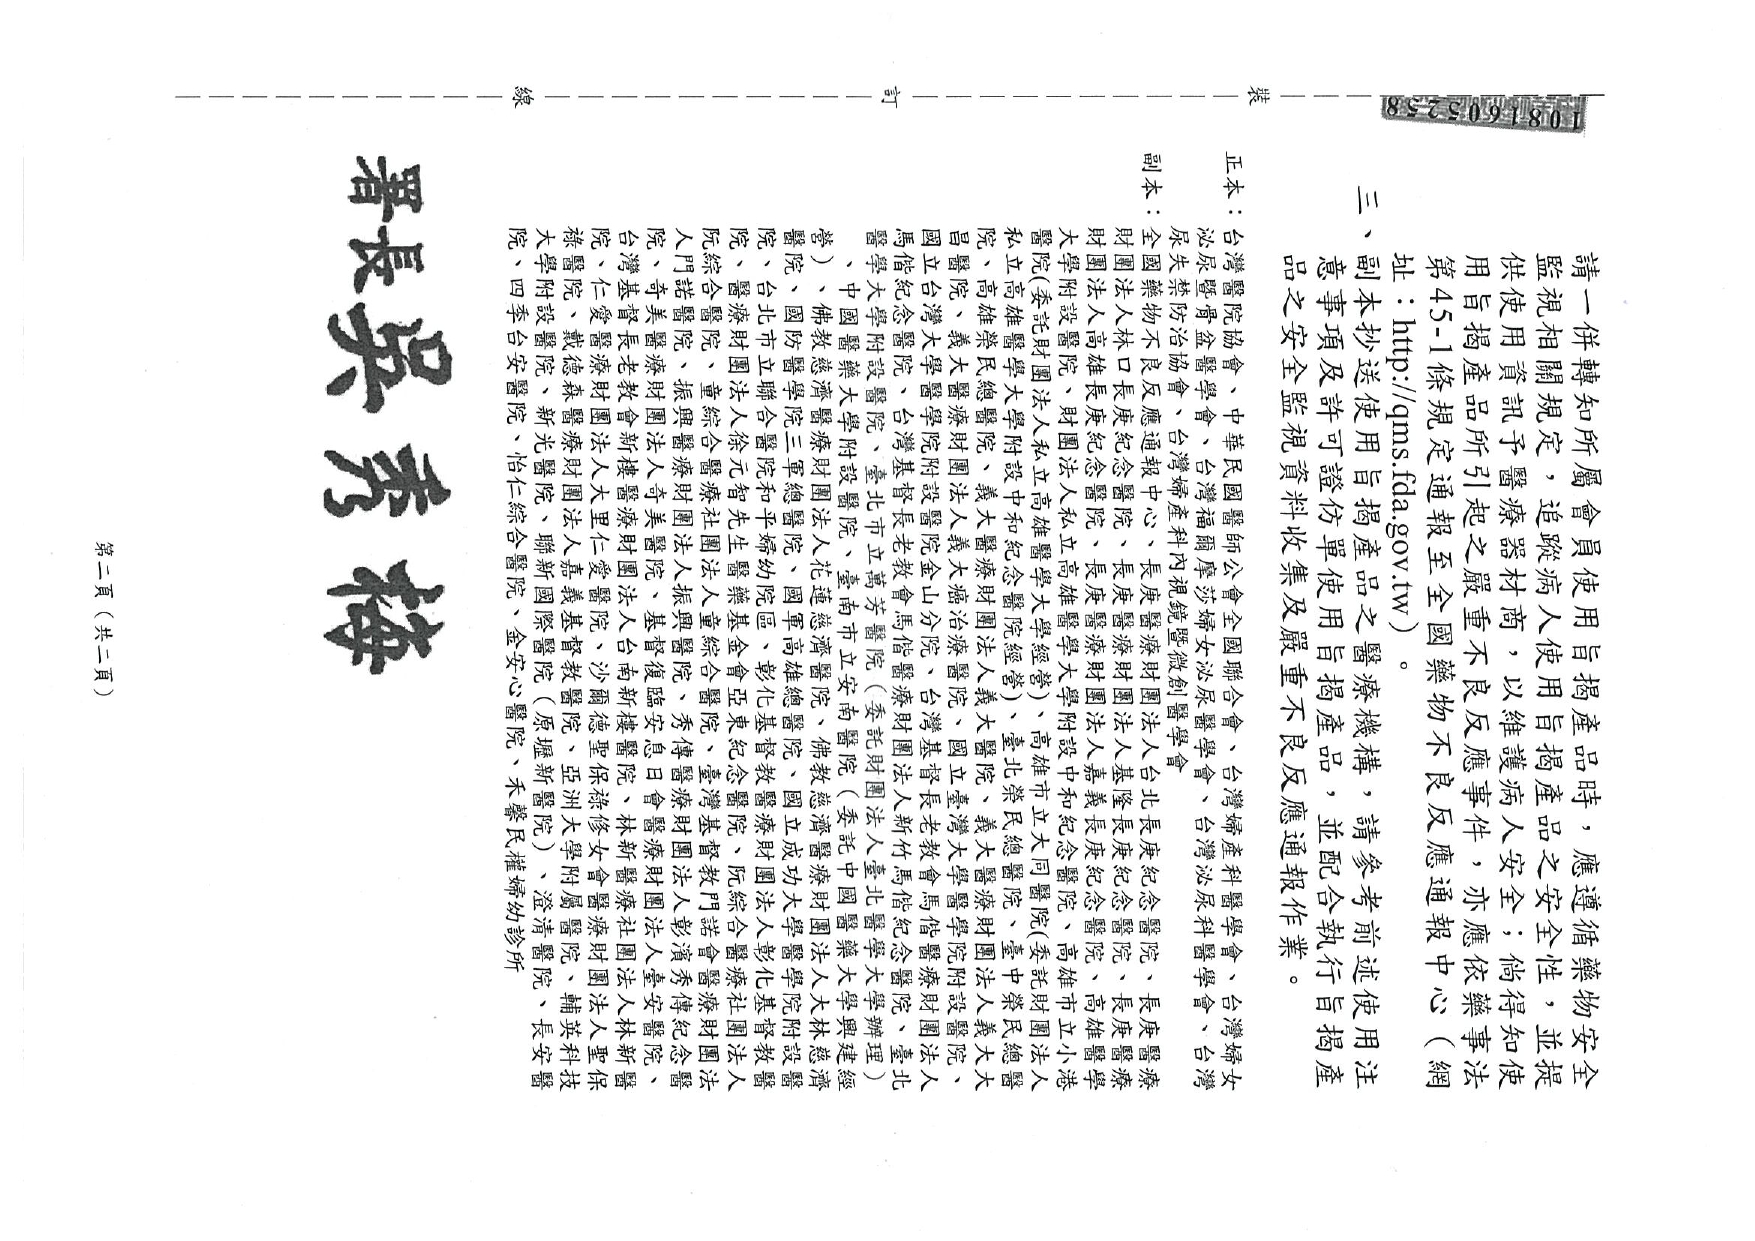 1081605258
請一併轉知所屬會員使用旨揭產品時，應遵循藥物安全
監視相關規定，追蹤病人使用旨揭產品之安全性，並提
供使用資訊予醫療器材商，以維護病人安全；倘得知使
用旨揭產品所引起之嚴重不良反應事件，亦應依藥事法
第45-1條規定通報至全國藥物不良反應通報中心（網
址：http://qms.fda.gov.tw）。
三、副本抄送使用旨揭產品之醫療機構，請參考前述使用注
意事項及許可證仿單使用旨揭產品，並配合執行旨揭產
品之安全監視資料收集及嚴重不良反應通報作業。
正本：台灣醫院協會、中華民國醫師公會全國聯合會、台灣婦產科醫學會、台灣婦女
泌尿暨骨盆醫學會、台灣福爾摩莎婦女泌尿醫學會、台灣泌尿科醫學會、台灣
尿失禁防治協會、台灣婦產科內視鏡暨微創醫學會
副本：全國藥物不良反應通報中心、長庚醫療財團法人台北長庚紀念醫院、長庚醫療
財團法人林口長庚紀念醫院、長庚醫療財團法人基隆長庚紀念醫院、長庚醫療
財團法人高雄長庚紀念醫院、長庚醫療財團法人嘉義長庚紀念醫院、高雄醫學
大學附設醫院、財團法人私立高雄醫學大學附設中和紀念醫院、高雄市立小港
醫院(委託財團法人私立高雄醫學大學經營)、高雄市立大同醫院(委託財團法人
私立高雄醫學大學附設中和紀念醫院經營)、臺北榮民總醫院、臺中榮民總醫
院、高雄榮民總醫院、義大醫療財團法人義大醫院、義大醫療財團法人義大大
昌醫院、義大醫療財團法人義大癌治療醫院、國立臺灣大學醫學院附設醫院、
國立台灣大學醫學院附設醫院金山分院、台灣基督長老教會馬偕醫療財團法人
馬偕紀念醫院、台灣基督長老教會馬偕醫療財團法人新竹馬偕紀念醫院、臺北
醫學大學附設醫院、臺北市立萬芳醫院（委託財團法人臺北醫學大學辦理）
、中國醫藥大學附設醫院、臺南市立安南醫院（委託中國醫藥大學興建經
營）、佛教慈濟醫療財團法人花蓮慈濟醫院、佛教慈濟醫療財團法人大林慈濟
醫院、國防醫學院三軍總醫院、國軍高雄總醫院、國立成功大學醫學院附設醫
院、台北市立聯合醫院和平婦幼院區、彰化基督教醫療財團法人彰化基督教醫
院、醫療財團法人徐元智先生醫藥基金會亞東紀念醫院、阮綜合醫療社團法人
阮綜合醫院、童綜合醫療社團法人童綜合醫院、臺灣基督教門諾會醫療財團法
人門諾醫院、振興醫療財團法人振興醫院、秀傳醫療財團法人彰濱秀傳紀念醫
院、奇美醫療財團法人奇美醫院、基督復臨安息日會醫療財團法人臺安醫院、
台灣基督長老教會新樓醫療財團法人台南新樓醫院、林新醫療社團法人林新醫
院、仁愛醫療財團法人大里仁愛醫院、沙爾德聖保祿修女會醫療財團法人聖保
祿醫院、戴德森醫療財團法人嘉義基督教醫院、亞洲大學附屬醫院、輔英科技
大學附設醫院、新光醫院、聯新國際醫院（原壢新醫院）、澄清醫院、長安醫
院、四季台安醫院、怡仁綜合醫院、金安心醫院、禾馨民權婦幼診所
署長吳秀梅
裝
訂
線
第二頁（共二頁）